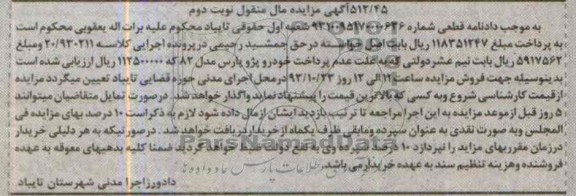 ۵۱۲/۴۵آگهی مزایده مال منقول نوبت دوم
به موجب دادنامه قطعی شماره ۹۳۱۰۰۹۵۱۷۰۰۰۶۴۶ شعبه اول حقوقی تایباد محکوم علیه برات اله یعقوبی محکوم است
به پرداخت مبلغ ۱۱۸۳۵۱۲۴۷ ریال بابت اصل خواسته در حق جمشید رحیمی در پرونده اجرایی کلاسه ۲۰/۹۳۰۲۱۱ ومبلغ
۵۹۱۷۵۶۲ ریال بابت نیم عشر دولتی که به علت عدم پرداخت خودرو پژو پارس مدل ۸۲ که ۱۱۲۵۰۰۰۰۰ ریال ارزیابی شده است
بدینوسیله جهت فروش مزایده ساعت ۱۱ الی ۱۲ روز ۹۳/۱۰/۲۳ در محل اجرای مدنی حوزه قضایی تایباد تعیین میگردد مزایده
از قیمت کارشناسی شروع وبه کسی که بالاترین قیمت را پیشنهاد نماید واگذار خواهد شد. درصورت تمایل متقاضیان میتوانند
۵ روز قبل از موعد مزایده به این اجرا مراجعه تا ترتیب بازدید ایشان از مال داده شود لازم به ذکر است ۱۰ درصد بهای مزایده فی
المجلس وبه صورت نقدی به عنوان سپرده ومابقی ظرف یکماه از خریدار دریافت خواهد شد. درصورتیکه به هر دلیلی خریدار
در زمان مقرر بهای مزاید را نپردازد ۱۰ خواهد گردید ضمنا کلیه بدهیهای معوقه به عهده
فروشنده وهزینه تنظیم سند به عهده خریدار می باشد.
دادورز اجرا مدنی شهرستان تایباد